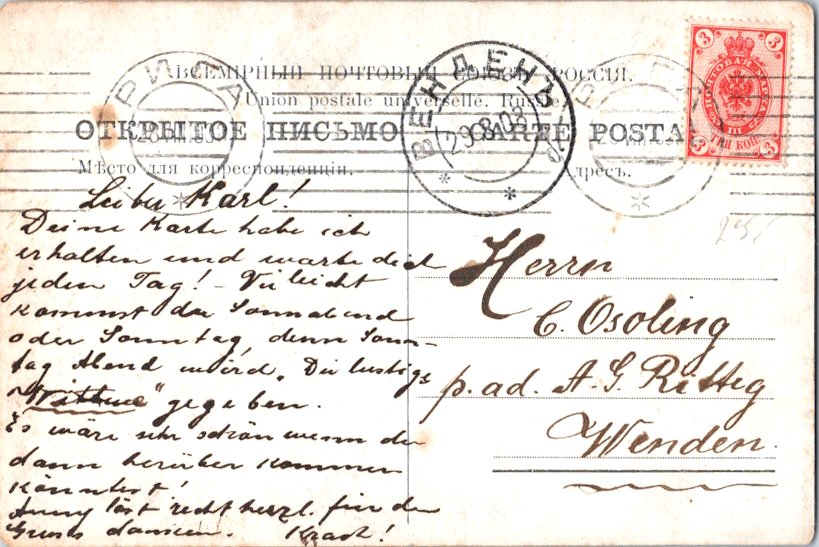 ВСЕМІРНЫЙ ПОЧТОВЫЙ СОЮЗЪ. РОССІЯ.
Union postale universelle. Russie.
ОТКРЫТОЕ ПИСЬМО CARTE POSTALE
Мѣсто для корреспонденціи.
Адресъ.
РИГА
РИГА
ВЕНДЕНЪ
29.8.08
3
3
3
3
ПОЧТОВАЯ МАРКА
ТРИ КОП.
Lieber Karl!
Deine Karte habe ich
erhalten und warte dich
jeden Tag! – Vieleicht
kommst du Sonnabend
oder Sonntag, denn Sonn-
tag Abend wird „Die lustige
Wittwe" gegeben.
Es wäre sehr schön wenn du
dann herüber kommen
könntest!
Anny läst recht herzl. für den
Gruss danken.
Herrn
C. Osoling
p. ad. A. G. Retteg
Wenden.